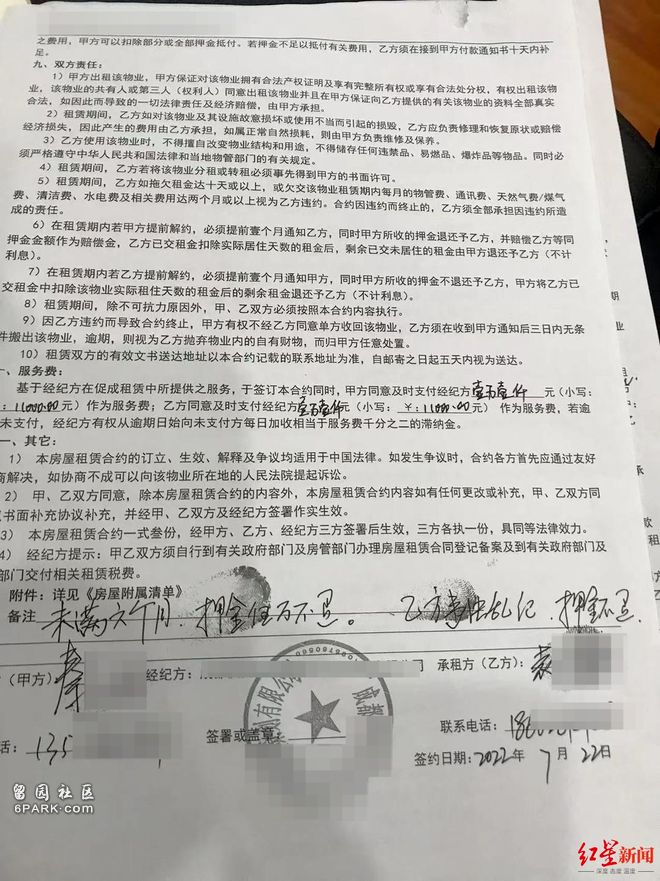 之费用，甲方可以扣除部分或全部押金抵付。若押金不足以抵付有关费用，乙方须在接到甲方付款通知书十天内补
足。
九、双方责任：
1）甲方出租该物业，甲方保证对该物业拥有合法产权证明及享有完整所有权或享有合法处分权，有权出租该物
业，该物业的共有人或第三人（权利人）同意出租该物业并且在甲方保证向乙方提供的有关该物业的资料全部真实
合法，如因此而导致的一切法律责任及经济赔偿，由甲方承担。
2）租赁期间，乙方如对该物业及其设施故意损坏或使用不当而引起的损毁，乙方应负责修理和恢复原状或赔偿
经济损失，因此产生的费用由乙方承担，如属正常自然损耗，则由甲方负责维修及保养。
3）乙方使用该物业时，不得擅自改变物业结构和用途，不得储存任何违禁品、易燃品、爆炸品等物品。同时必
须严格遵守中华人民共和国法律和当地物管部门的有关规定。
4）租赁期间，乙方若将该物业分租或转租必须事先得到甲方的书面许可。
5）租赁期间，乙方如拖欠租金达十天或以上，或欠交该物业租赁期内每月的物管费、通讯费、天然气费/煤气
费、清洁费、水电费及相关费用达两个月或以上视为乙方违约。合约因违约而终止的，乙方须全部承担因违约所造
成的责任。
6）在租赁期内若甲方提前解约，必须提前壹个月通知乙方，同时甲方所收的押金退还予乙方，并赔偿乙方等同
押金金额作为赔偿金，乙方已交租金扣除实际居住天数的租金后，剩余已交未居住的租金由甲方退还予乙方（不计
利息）。
7）在租赁期内若乙方提前解约，必须提前壹个月通知甲方，同时甲方所收的押金不退还予乙方，甲方将乙方已
交租金中扣除该物业实际租住天数的租金后的剩余租金退还予乙方（不计利息）。
8）租赁期间，除不可抗力原因外，甲、乙双方必须按照本合约内容执行。
9）因乙方违约而导致合约终止，甲方有权不经乙方同意单方收回该物业，乙方须在收到甲方通知后三日内无条
件搬出该物业，逾期，则视为乙方抛弃物业内的自有财物，而归甲方任意处置。
10）租赁双方的有效文书送达地址以本合约记载的联系地址为准，自邮寄之日起五天内视为送达。
一、服务费：
基于经纪方在促成租赁中所提供之服务，于签订本合约同时，甲方同意及时支付经纪方壹万壹仟元（小写：
：11000.00元）作为服务费；乙方同意及时支付经纪方壹万壹仟元（小写：￥：11000.00元）作为服务费，若逾
未支付，经纪方有权从逾期日始向未支付方每日加收相当于服务费千分之二的滞纳金。
一、其它：
1） 本房屋租赁合约的订立、生效、解释及争议均适用于中国法律。如发生争议时，合约各方首先应通过友好
商解决，如协商不成可以向该物业所在地的人民法院提起诉讼。
2） 甲、乙双方同意，除本房屋租赁合约的内容外，本房屋租赁合约内容如有任何更改或补充，甲、乙双方同
以书面补充协议补充，并经甲、乙双方及经纪方签署作实生效。
3） 本房屋租赁合约一式叁份，经甲方、乙方、经纪方三方签署后生效，三方各执一份，具同等法律效力。
4） 经纪方提示：甲乙双方须自行到有关政府部门及房管部门办理房屋租赁合同登记备案及到有关政府部门及
部门交付相关租赁税费。
附件：详见《房屋附属清单》
备注 未满六个月、押金伍万不退。 乙方违法乱纪、押金不退.
（甲方）： 经纪方： 公司 承租方（乙方）：袁
签署或盖章： 联系电话：
话：135
签约日期：2022年7月22日
留园社区
6PARK.COM
红星新闻
深度 态度 温度